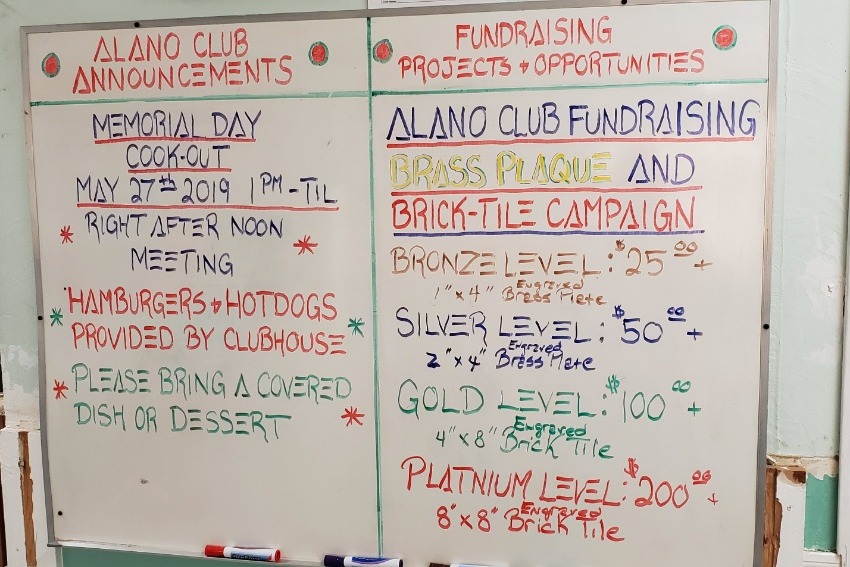 ALANO CLUB
ANNOUNCEMENTS
MEMORIAL DAY
COOK-OUT
MAY 27th 2019 1PM-TIL
* RIGHT AFTER NOON *
MEETING
* HAMBURGERS + HOTDOGS *
PROVIDED BY CLUBHOUSE
* PLEASE BRING A COVERED
DISH OR DESSERT *
FUNDRAISING
PROJECTS + OPPORTUNITIES
ALANO CLUB FUNDRAISING
BRASS PLAQUE AND
BRICK-TILE CAMPAIGN
BRONZE LEVEL: $25 00 +
1" x 4" Engraved Brass Plate
SILVER LEVEL: $50 00 +
2" x 4" Engraved Brass Plate
GOLD LEVEL: $100 00 +
4" x 8" Engraved Brick Tile
PLATNIUM LEVEL: $200 00 +
8" x 8" Engraved Brick Tile